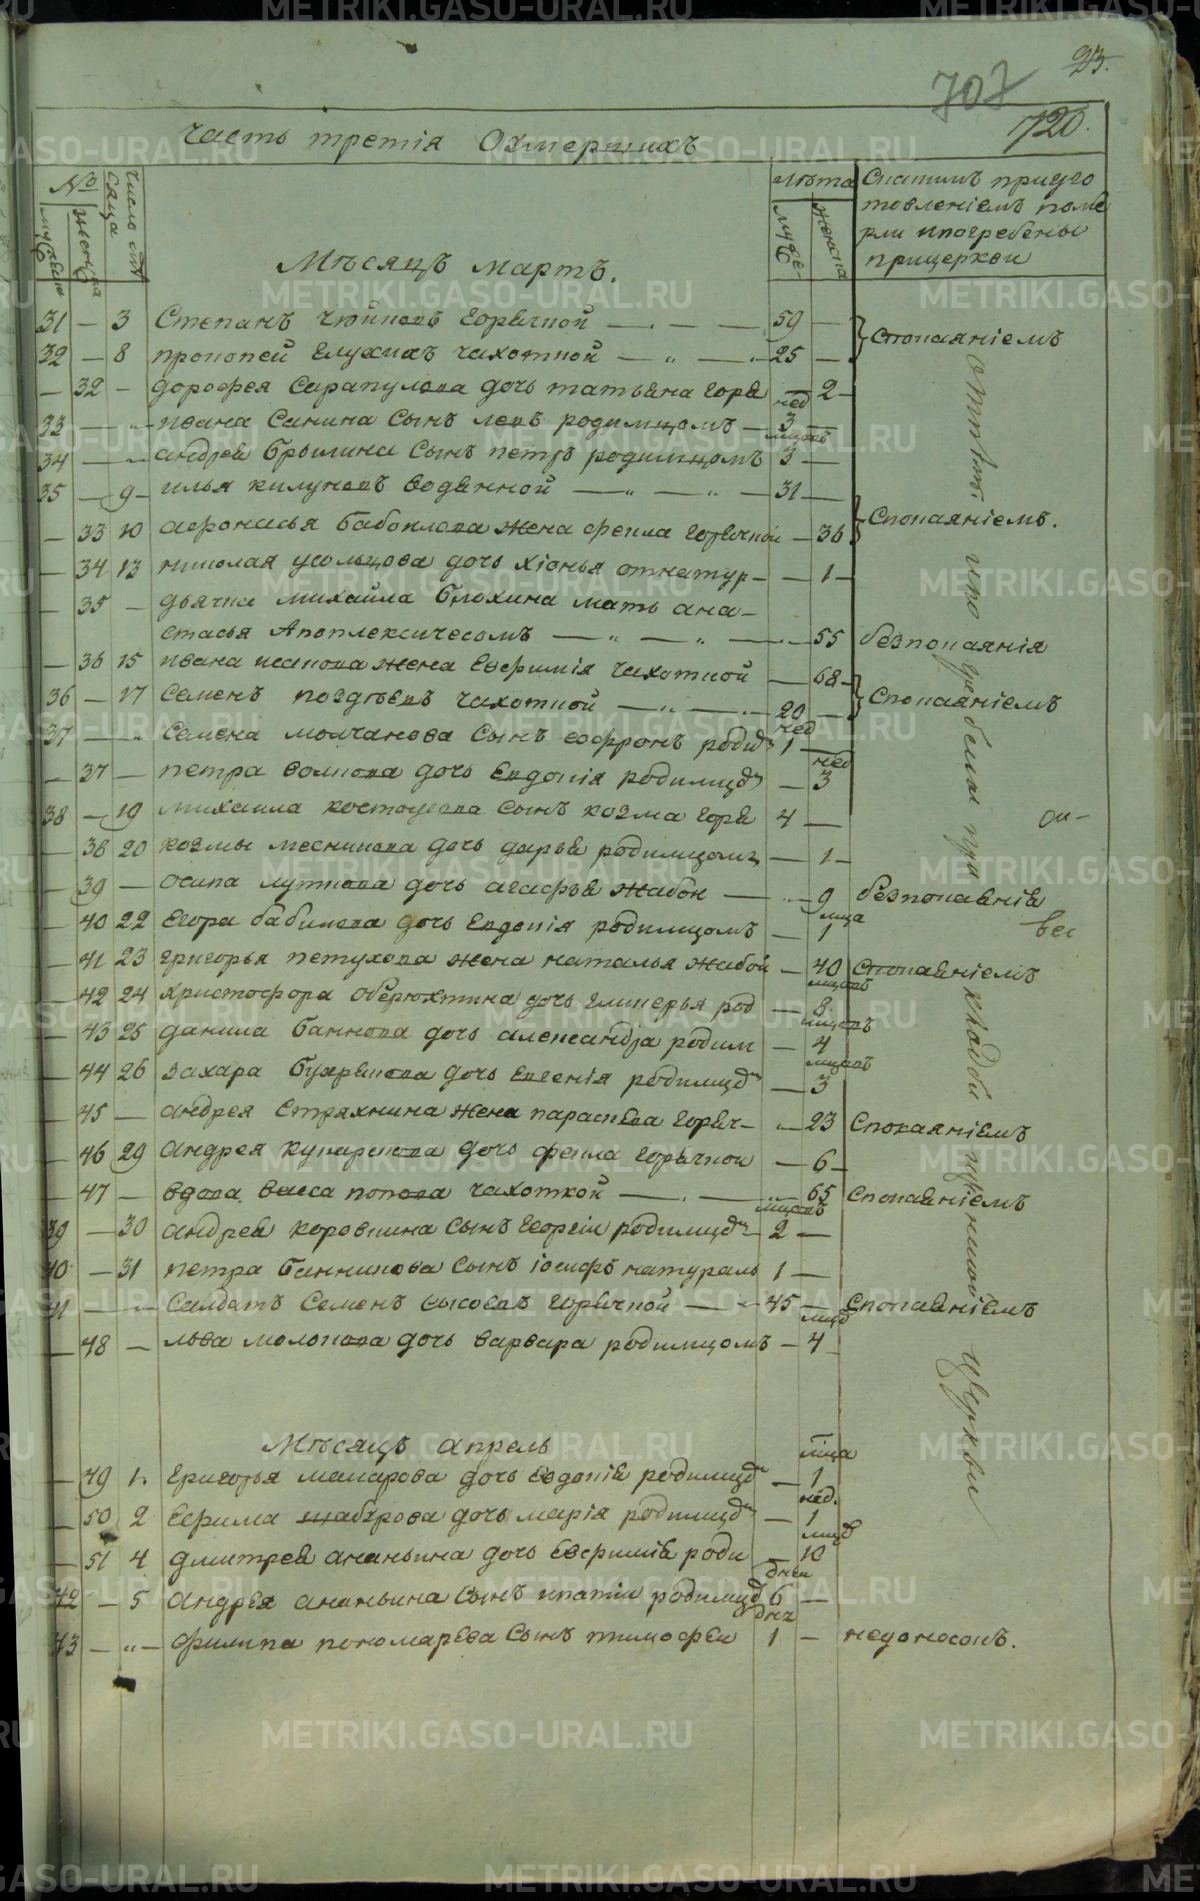 23.
707
720.
Часть третія Оумершихъ
№
мужеска
женска
Число мѣсяца
Лѣта
мужес-
женска
Снапимъ приуго
товленіемъ поме
рли ипогребены
прицеркви
Мѣсяцъ мартъ.
31 — 3 Степанъ горячной — 59 —
32 — 8 прокопей глухихъ чахотной — 25 — Спокаяніемъ
— 32 — дорофея Сарапулова дочь татьяна горя — 2 —
нед
33 — „ ивана Санина Сынъ левъ родимцомъ — 3 —
мцовъ
34 — „ андрея брылина Сынъ петръ родимцомъ 3 —
35 — 9 — илья килуновъ водянной — „ — „ — 31 —
— 33 10 афонасья бабоклова жена фекла горячной — 36 Спокаяніемъ.
— 34 13 николая усольцова дочь хіонья отнатур — — 1 —
— 35 — дьячка михайла блохина мать ана-
стасья Апоплексичесомъ — „ — „ — 55 безпокаянія
— 36 15 ивана исакова жена Евфимія чахотной — 68 —
36 — 17 Семенъ поздѣевъ чахотной — „ — 20 — Спокаяніемъ
нед
37 — „ Семена молчанова Сынъ софронъ роди 1 —
нед
— 37 — петра волкова дочь Евдокія родимцо — 3
38 — 19 михаила костоусова Сынъ козма горя 4 —
— 38 20 козмы месникова дочь дарья родимцомъ — 1 —
— 39 — осипа луткова дочь агафья жабой — 9 безпокаянія
мца
— 40 22 Егора бабикова дочь Евдокія родимцомъ — 1
— 41 23 григорья петухова жена наталья жабой — 40 Спокаяніемъ
мцовъ
— 42 24 христофора оберюхтина дочь гликерья род — 8
мцовъ
— 43 25 данила банкова дочь александра родим — 4
мцовъ
— 44 26 захара бухрякова дочь Евгенія родимцо — 3
— 45 — андрея Стряхнина жена парасковья горяч — „ — 23 Спокаяніемъ
— 46 29 андрея кунарскова дочь фекла горячной — 6 —
— 47 — вдова васса попова чахоткой — 65 Спокаяніемъ
мцовъ
39 — 30 андрея коровкина Сынъ георгій родимцо — 2 —
40 — 31 петра банникова Сынъ іосифъ натураль 1 —
41 — „ Салдатъ Семенъ высовъ горячной — „ 45 — Спокаяніемъ
мцо
— 48 — льва молокова дочь варвара родимцомъ — 4
Мѣсяцъ апрель
мца
— 49 1. григорья макарова дочь евдокія родимцо — 1
нед.
— 50 2 Ефима шабурова дочь марія родимцо — 1
мцо
— 51 4 дмитрея ананьина дочь Евфимія роди 10
дней
42 — 5 андрея ананьина Сынъ ипатій родимцо 6 —
дня
43 — „ — филипа пономарева Сынъ тимофей 1 — недоносокъ.
церкви